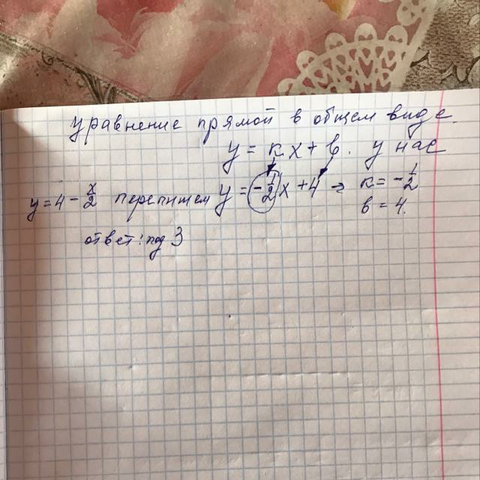 уравнение прямой в общем виде.
y = kx + b. у нас
y = 4 - x/2 перепишем y = -1/2 x + 4 => k = -1/2
b = 4.
ответ: под 3